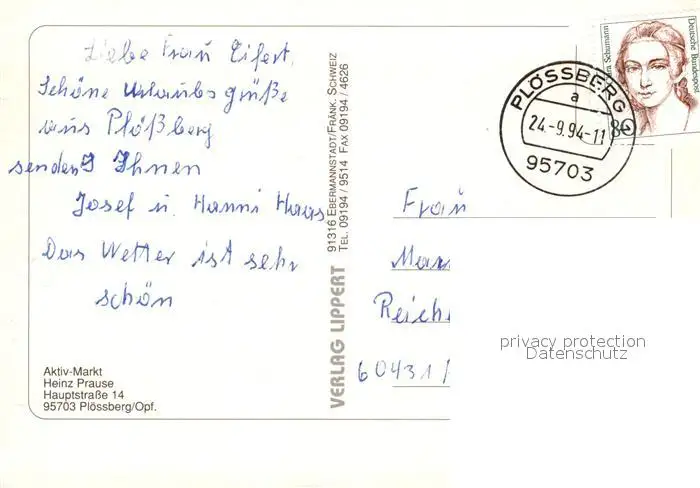 Liebe Frau Eifert,
Schöne Urlaubsgrüße
aus Plößberg
senden Ihnen
Josef u. Hanni Haas
Das Wetter ist sehr
schön
Aktiv-Markt
Heinz Prause
Hauptstraße 14
95703 Plössberg/Opf.
VERLAG LIPPERT
91316 EBERMANNSTADT/FRÄNK. SCHWEIZ
TEL. 09194 / 9514 FAX 09194 / 4626
PLÖSSBERG
a
24.-9.94-11
95703
Clara Schumann
Deutsche Bundespost
80
Frau
Reich
60431
privacy protection
Datenschutz